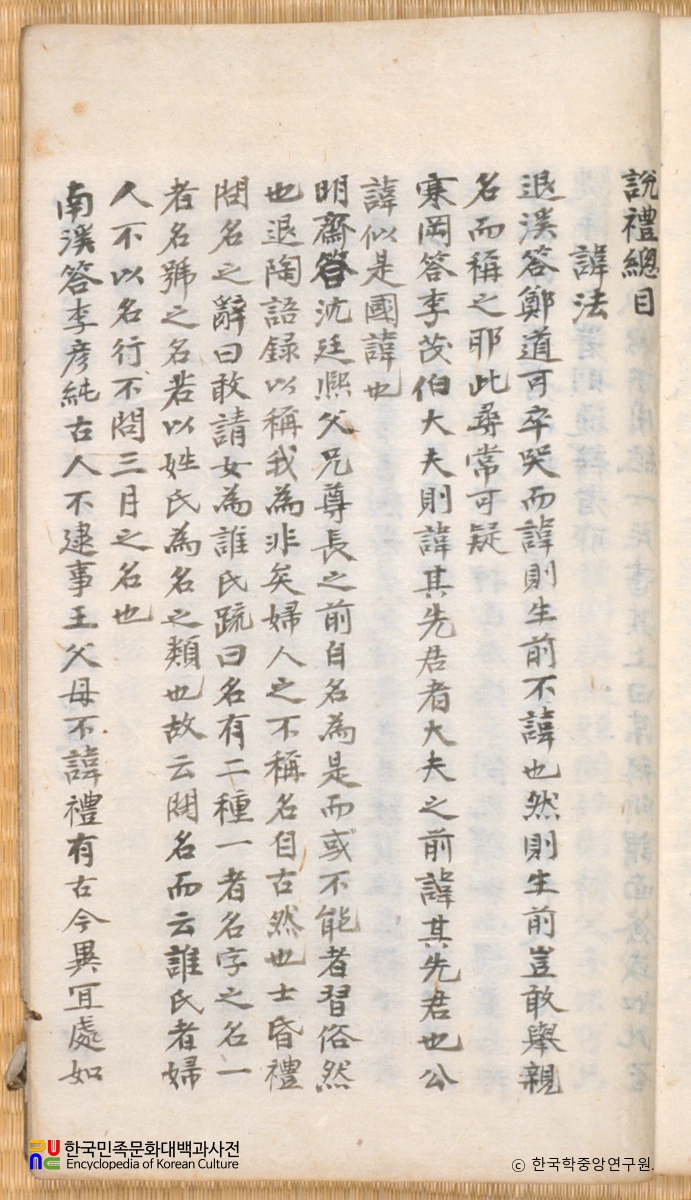 說禮總目
諱法
退溪答鄭道可卒哭而諱則生前不諱也然則生前豈敢舉親
名而稱之耶此尋常可疑
寒岡答李茂伯大夫則諱其先君者大夫之前諱其先君也公
諱似是國諱也
明齋答沈廷熙父兄尊長之前自名為是而或不能者習俗然
也退陶語録以稱我為非矣婦人之不稱名自古然也士昏禮
問名之辭曰敢請女為誰氏疏曰名有二種一者名字之名一
者名號之名若以姓氏為名之類也故云問名而云誰氏者婦
人不以名行不問三月之名也
南溪答李彦純古人不逮事王父母不諱禮有古今異宜處如
한국민족문화대백과사전
Encyclopedia of Korean Culture
© 한국학중앙연구원